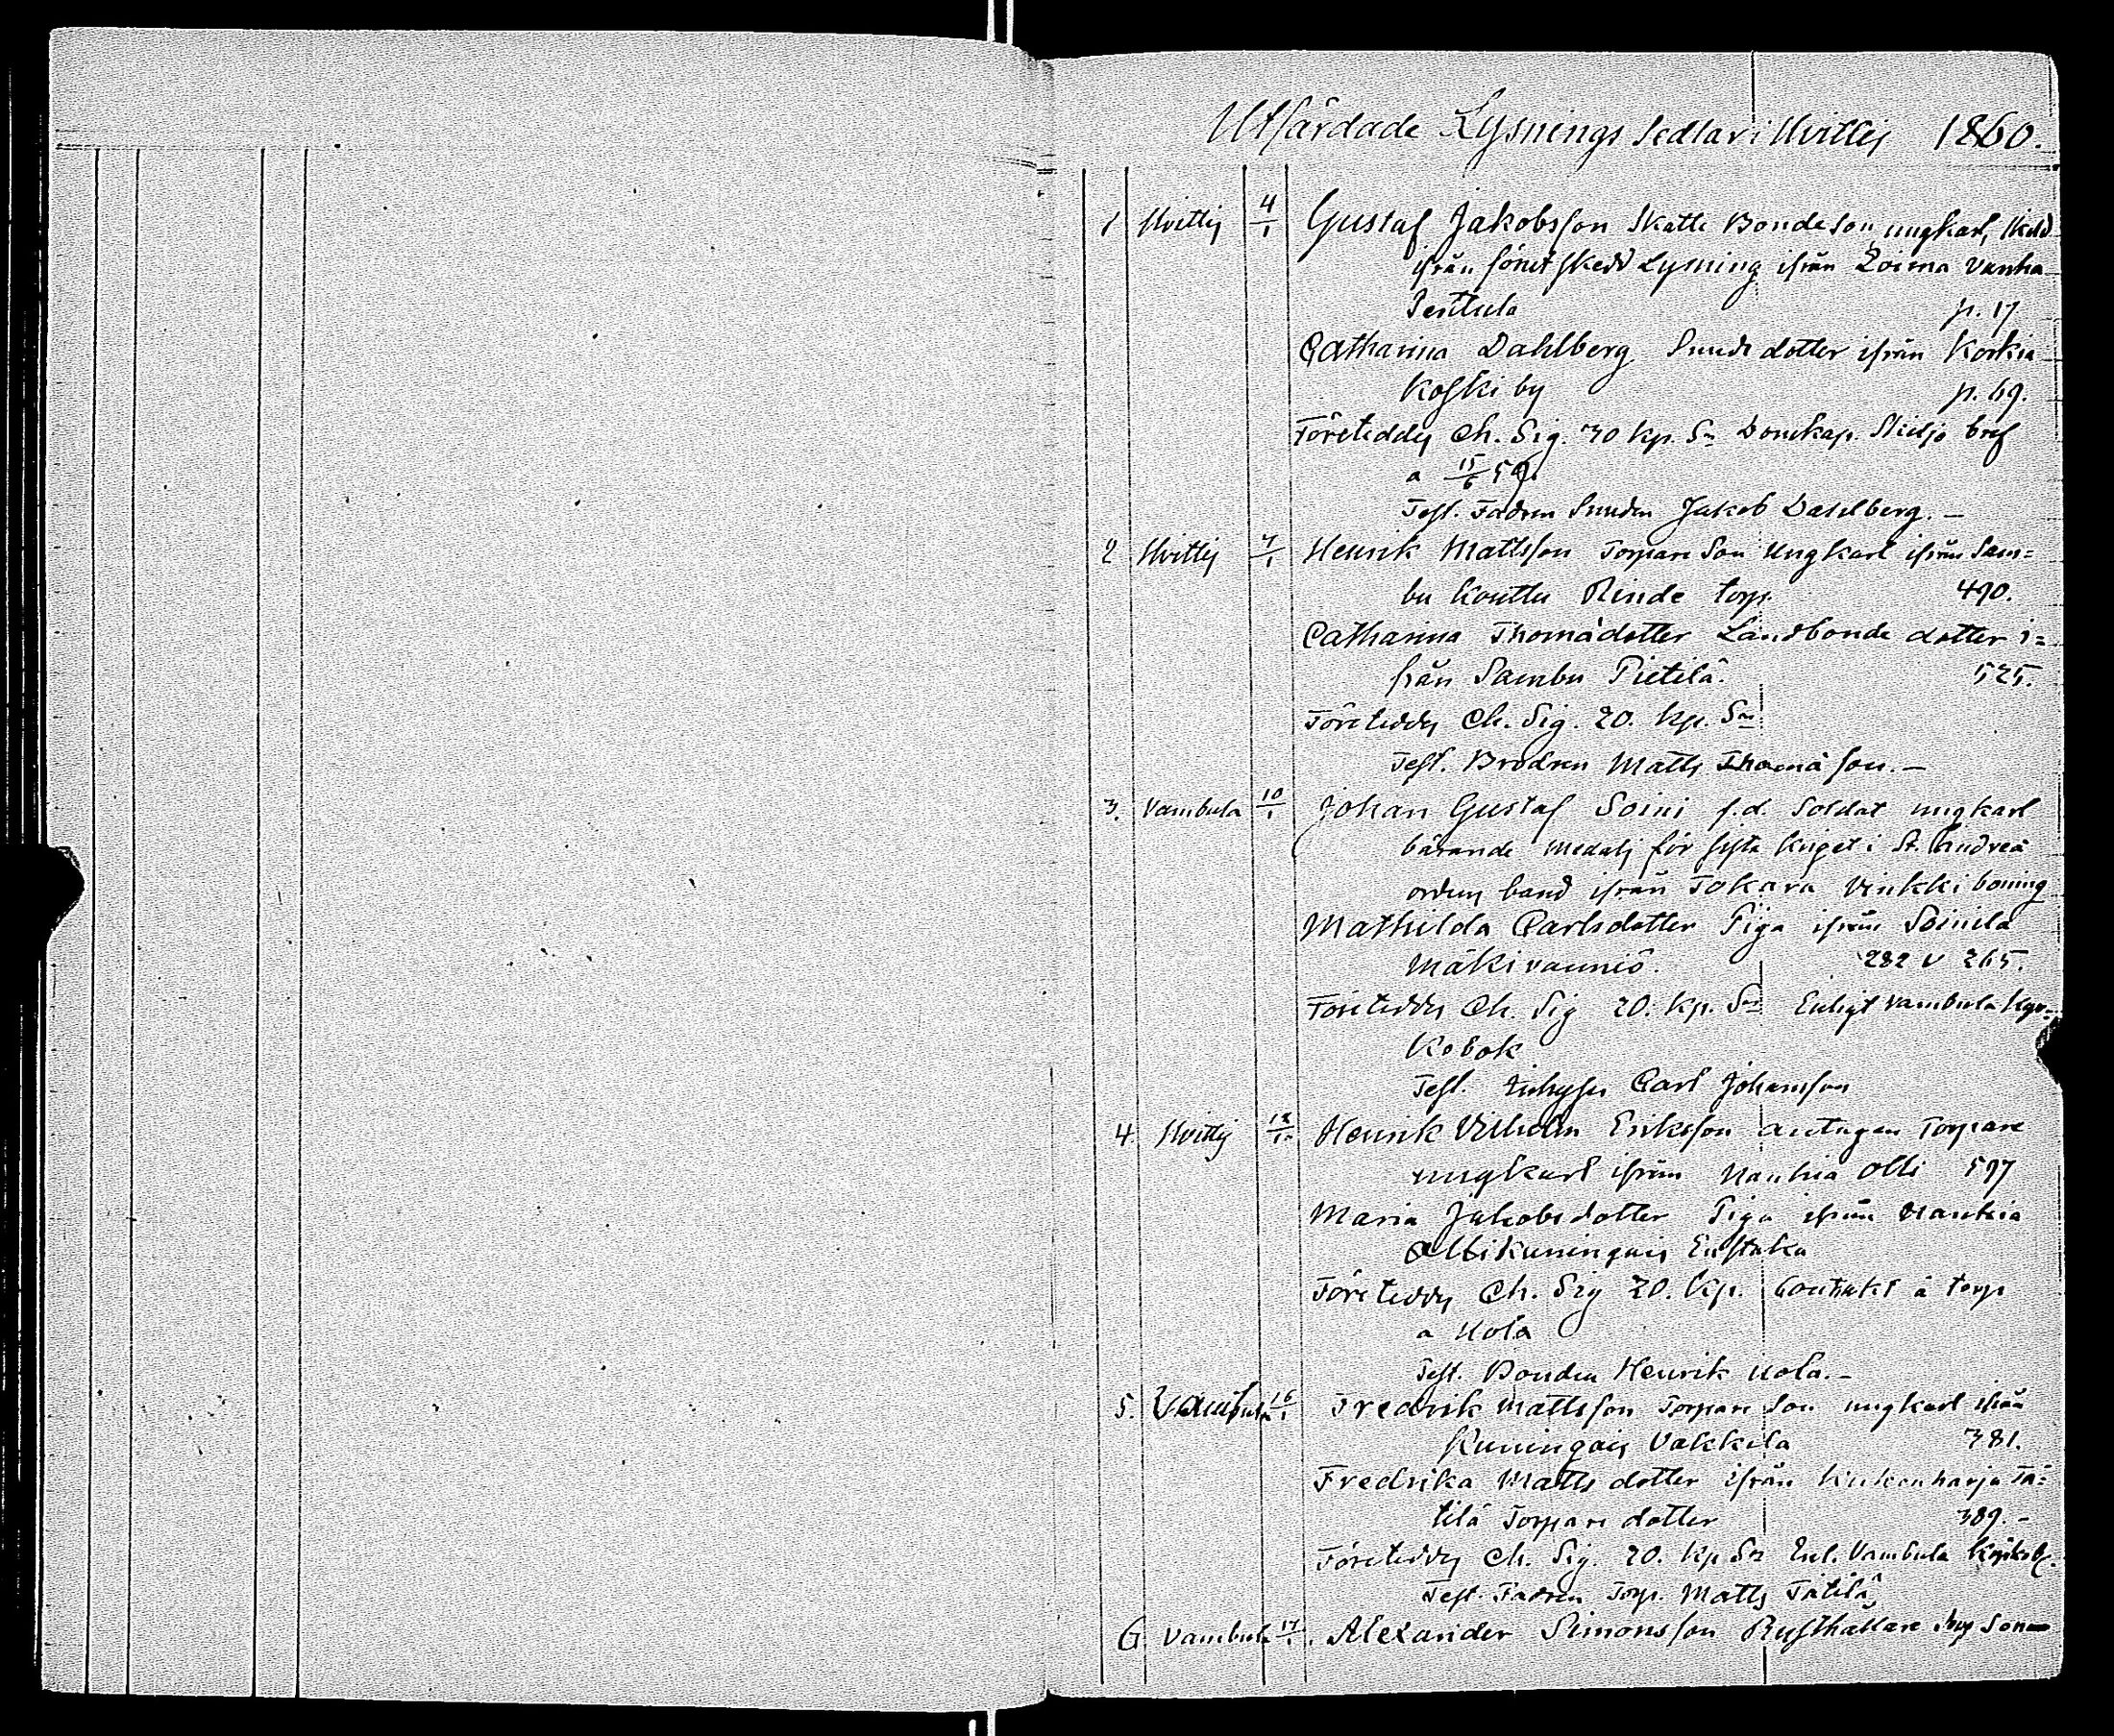 Utfärdade Lysnings Sedlar i Hvittis 1860.
1 Hvittis 4/1 Gustaf Jakobsson Skatte Bondeson ungkarl, skild
ifrån förut skedd Lysning ifrån Loima Vanha
Perttula p. 17
Catharina Dahlberg Smeds dotter ifrån Korkia
koski by p. 69.
Företeddes Ch. Sig. 30 kp. Sr Domkap. Skiljo bref
a 15/6 59.
Test. Fadren Smeden Jakob Dahlberg. —
2 Hvittis 7/1 Henrik Mattsson Torpare Son Ungkarl ifrån Sam=
bu Kouttu Rinde torp. 490.
Catharina Thomädotter Landbonde dotter i=
från Sambu Pietilä. 525.
Företeddes Ch. Sig. 20. kp. Sr
Test. Brodren Matts Thomä son. —
3. Vambula 10/1 Johan Gustaf Soini f.d. Soldat ungkarl
bärande medalj för sista kriget i St. Andreä
ordens band ifrån Tokara Vinkki boning
Mathilda Carlsdotter Piga ifrån Soinila
Mäkivainniö. 282 v 265.
Företeddes Ch. Sig 20. kp. Sr Enligt Vambula Kyr=
kobok
Test. Inhyses Carl Johansson
4. Hvittis Henrik Vilhelm Eriksson antagen Torpare
ungkarl ifrån Nanhia Olli 597
Maria Jakobsdotter Piga ifrån Nanhia
Allikuningais
Företeddes Ch. Sig 20. kp. Contrakt å torp
a Uola
Test. Bonden Henrik Uola. —
5. Vambula 16/1 Fredrik Mattsson Torpare Son ungkarl ifrån
Kuningais Vakkila 381.
Fredrika Matts dotter ifrån Kukonharja Tä=
tilä Torpare dotter 389. —
Företeddes Ch. Sig. 20. kp Sr Enl. Vambula
Test. Fadren Torp. Matts Tätilä,
6. Vambula 17/1. Alexander Simonsson Rusthållare Son